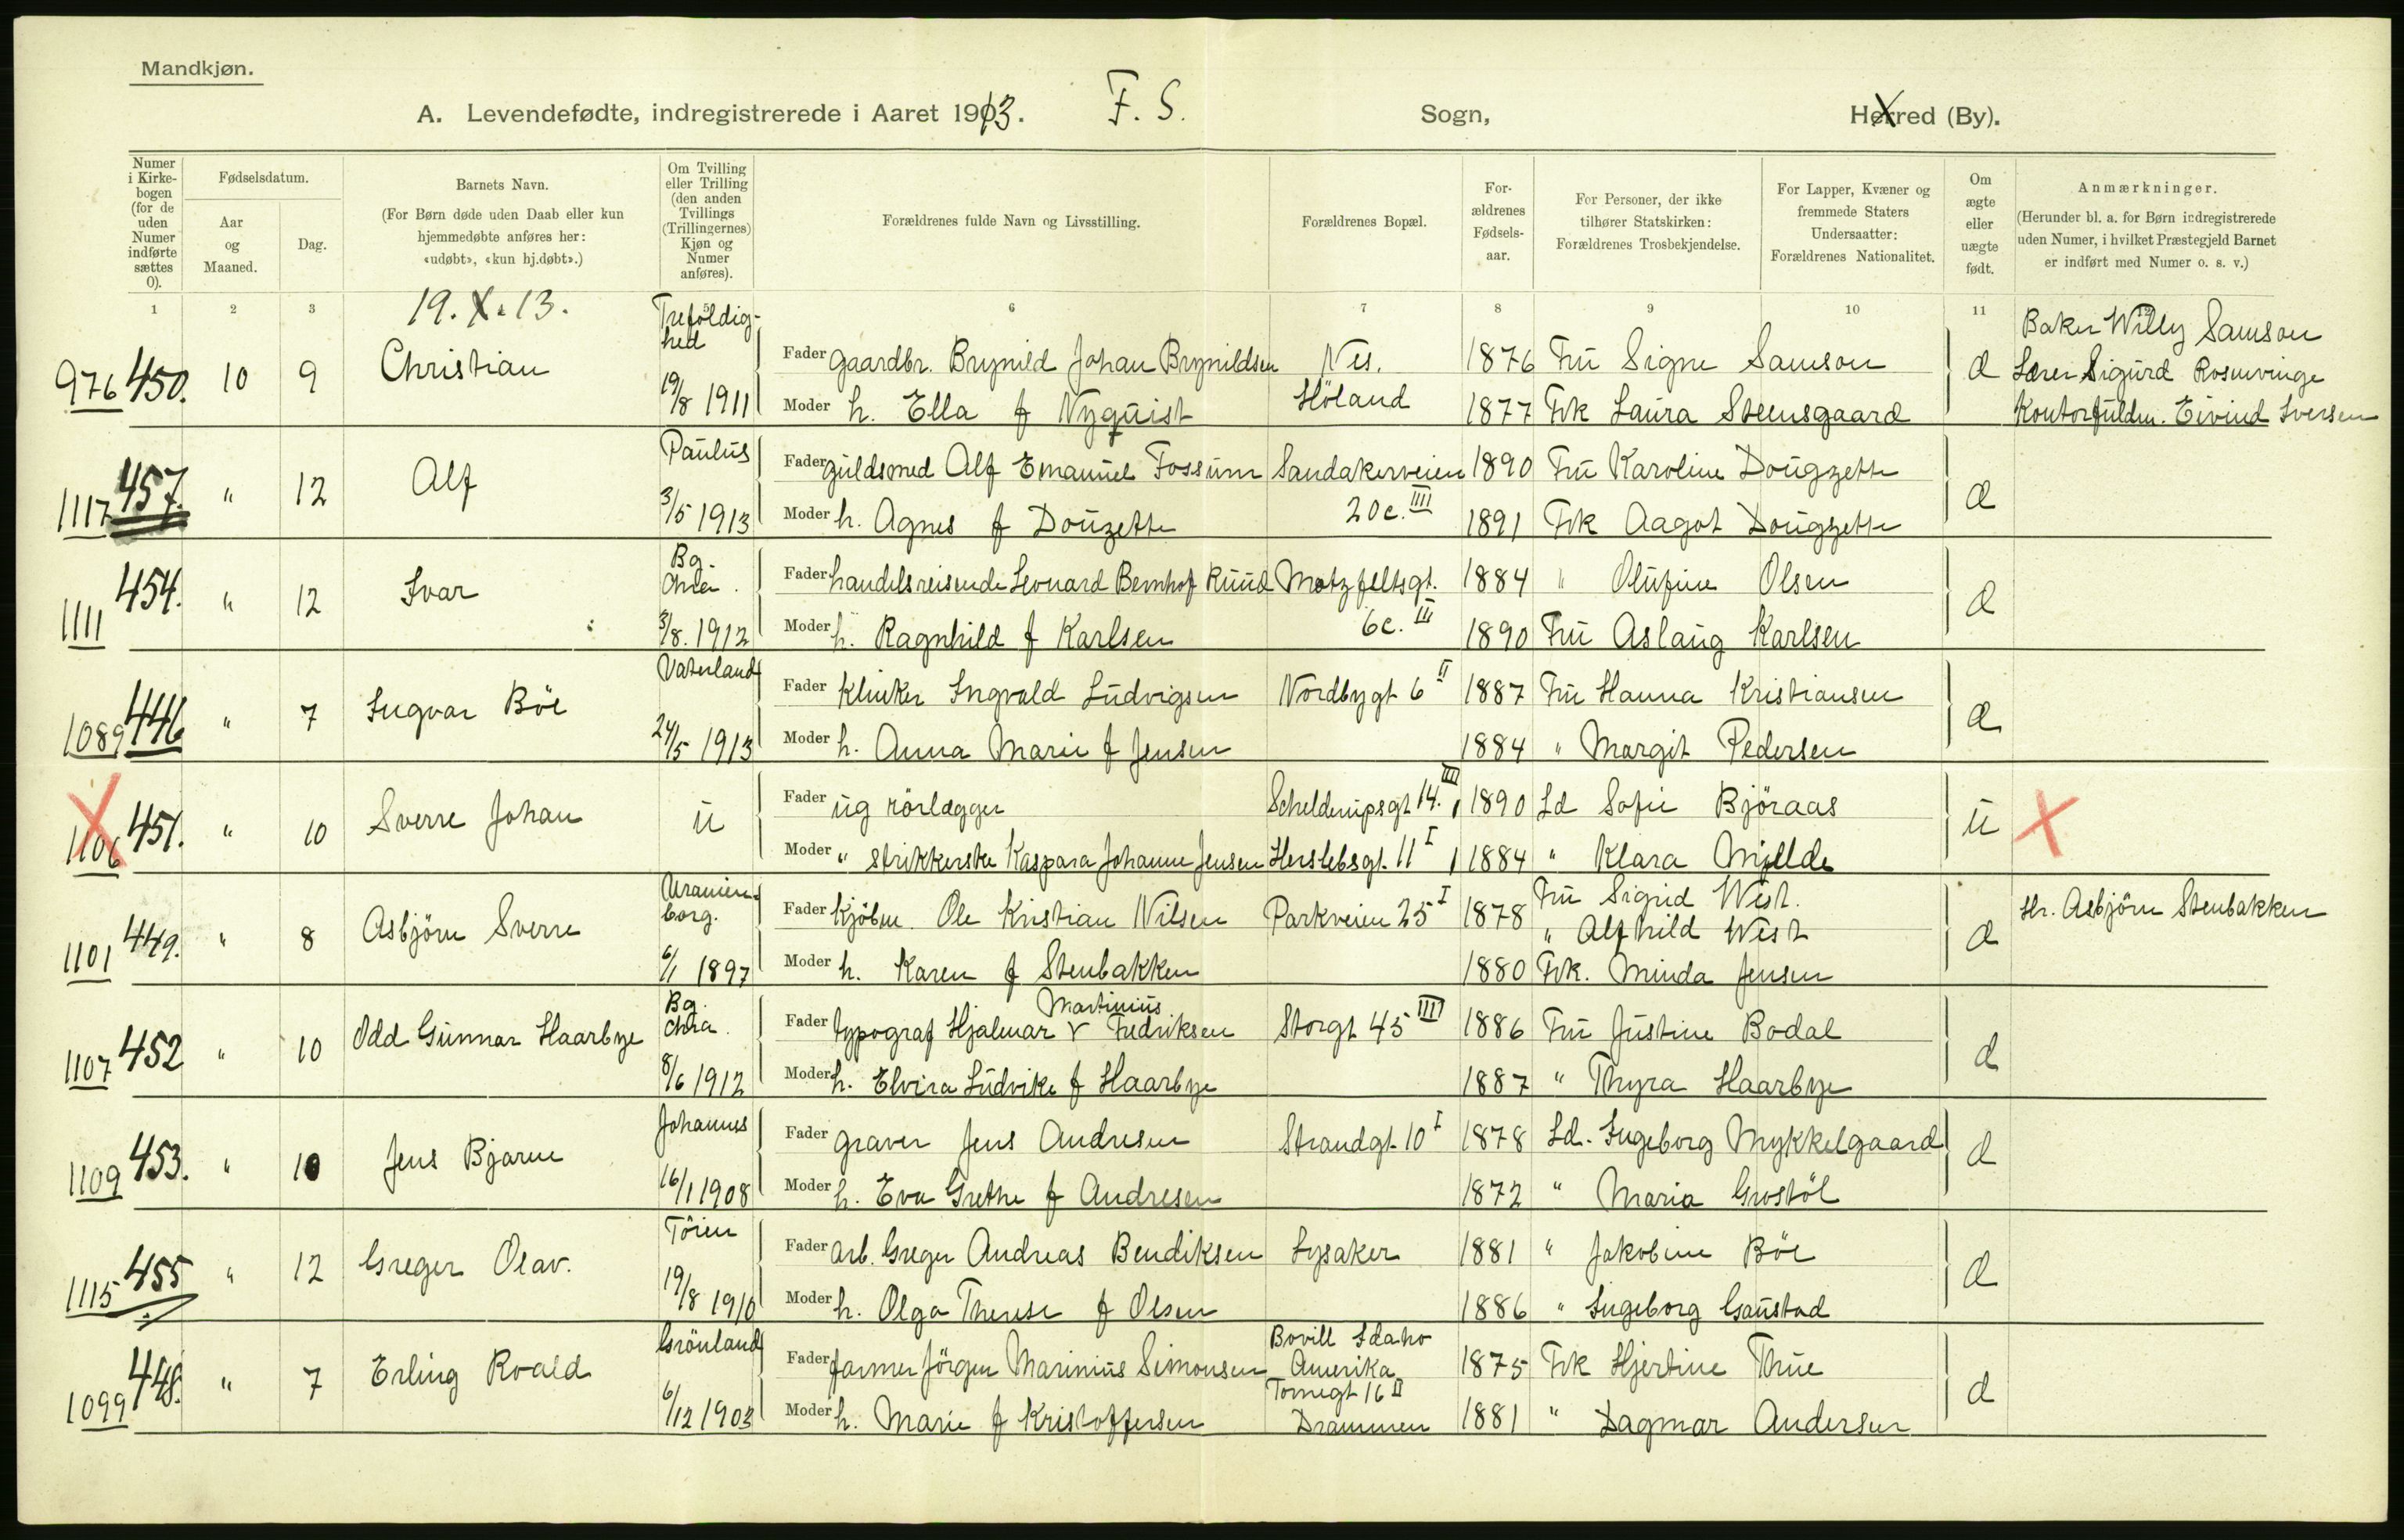 Mandkjøn.
A. Levendefødte, indregistrerede i Aaret 1913. F. S. Sogn, Herred (By).
Numer i Kirkebogen (for de uden Numer indførte sættes 0).
Fødselsdatum.
Aar og Maaned.
Dag.
Barnets Navn.
(For Børn døde uden Daab eller kun hjemmedøbte anføres her: «udøbt», «kun hj.døbt».)
Om Tvilling eller Trilling (den anden Tvillings (Trillingernes) Kjøn og Numer anføres).
Forældrenes fulde Navn og Livsstilling.
Forældrenes Bopæl.
Forældrenes Fødselsaar.
For Personer, der ikke tilhører Statskirken: Forældrenes Trosbekjendelse.
For Lapper, Kvæner og fremmede Staters Undersaatter: Forældrenes Nationalitet.
Om ægte eller uægte født.
Anmærkninger.
(Herunder bl. a. for Børn indregistrerede uden Numer, i hvilket Præstegjeld Barnet er indført med Numer o. s. v.)
1 2 3 5 6 7 8 9 10 11 12
19. X. 13.
976 450. 10 9 Christian Trefoldighed 19/8 1911
Fader gaardbr. Brynild Johan Brynildsen Nes. 1876 Fru Signe Samson
Moder h. Ella f Nyquist Höland 1877 Frk Laura Steensgaard
æ
Baker Willy Samson
Lærer Sigurd Rosenvinge
Kontorfuldm. Eivind Iversen
1117 457. " 12 Alf Paulus 3/5 1913
Fader guldsmed Alf Emanuel Fossum Sandakerveien 1890 Fru Karoline Dougzette
Moder h. Agnes f Douzette 20c. IIII 1891 Frk Aagot Dougzette
æ
1111 454. " 12 Ivar Bg. Chria. 3/8. 1912
Fader handelsreisende Leonard Bernhof Ruud Motzfeltsgt. 1884 " Olufine Olsen
Moder h. Ragnhild f Karlsen 6c. III 1890 Fru Aslaug Karlsen
æ
1089 446 " 7 Ingvar Böe Vaterland 24/5 1913
Fader Klinker Ingvald Ludvigsen Nordbygt 6 II 1887 Fru Hanna Kristiansen
Moder h. Anna Marie f Jensen 1884 " Margit Pedersen
æ
1106 451. " 10 Sverre Johan u
Fader ug rörlægger Schelderupsgt 14. IIII 1890 Ld Sofie Björaas
Moder " strikkerske Kaspara Johanne Jensen Herslebsgt. 11 I 1884 " Klara
u X
1101 449. " 8 Asbjörn Sverre Uranienborg. 6/1 1897
Fader Kjöbm. Ole Kristian Nilsen Parkveien 25 I 1878 Fru Sigrid West.
" Alfhild West
Moder h. Karen f Stenbakken 1880 Frk. Minda Jensen
æ
Hr. Asbjörn Stenbakken
1107 452 " 10 Odd Gunnar Haarbye Bg. Chria. 8/6 1912
Martinius
Fader typograf Hjalmar v Fredriksen Storgt 45 III 1886 Fru Justine Bodal
Moder h. Elvira Ludvike f Haarbye 1887 " Thyra Haarbye
æ
1109 453. " 10 Jens Bjarne Johannes 16/1 1908
Fader graver Jens Andresen Strandgt. 10 I 1878 Ld. Ingeborg Mykkelgaard
Moder h. Eva Grethe f Andresen 1872 " Maria Grostöl
æ
1115 455 " 12 Greger Olav. Töien 19/8 1910
Fader arb. Greger Andreas Bendiksen Lysaker 1881 " Jakobine Böe
Moder h. Olga Therese f Olsen 1886 " Ingeborg Gaustad
æ
1099 448. " 7 Erling Roald Grönland 6/12 1903
Bovill Idaho
Fader farmer Jörgen Marinius Simonsen Amerika 1875 Frk Hjertine Thue
Tornegt 16 II
Moder h. Marie f Kristoffersen Drammen 1881 " Dagmar Andersen
æ